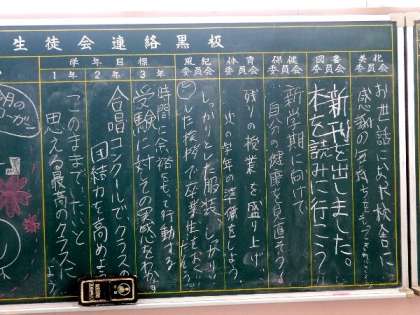 生徒会連絡黒板
美化委員会
お世話になった校舎に
感謝の気持ちを
図書委員会
新刊を出しました。
本を読みに行こう
保健委員会
新学期に向けて
自分の健康を見直そう
体育委員会
残りの授業を盛り上げ
次の学年の準備をしよう
風紀委員会
しっかりとした服装
とした挨拶で卒業生を
学年目標
3年
時間に余裕をもって行動する
受験に対しての実感をもつ
2年
合唱コンクールでクラスの
団結力を高めよう
1年
このままでいたいと
思える最高のクラスに
しよう
今月の